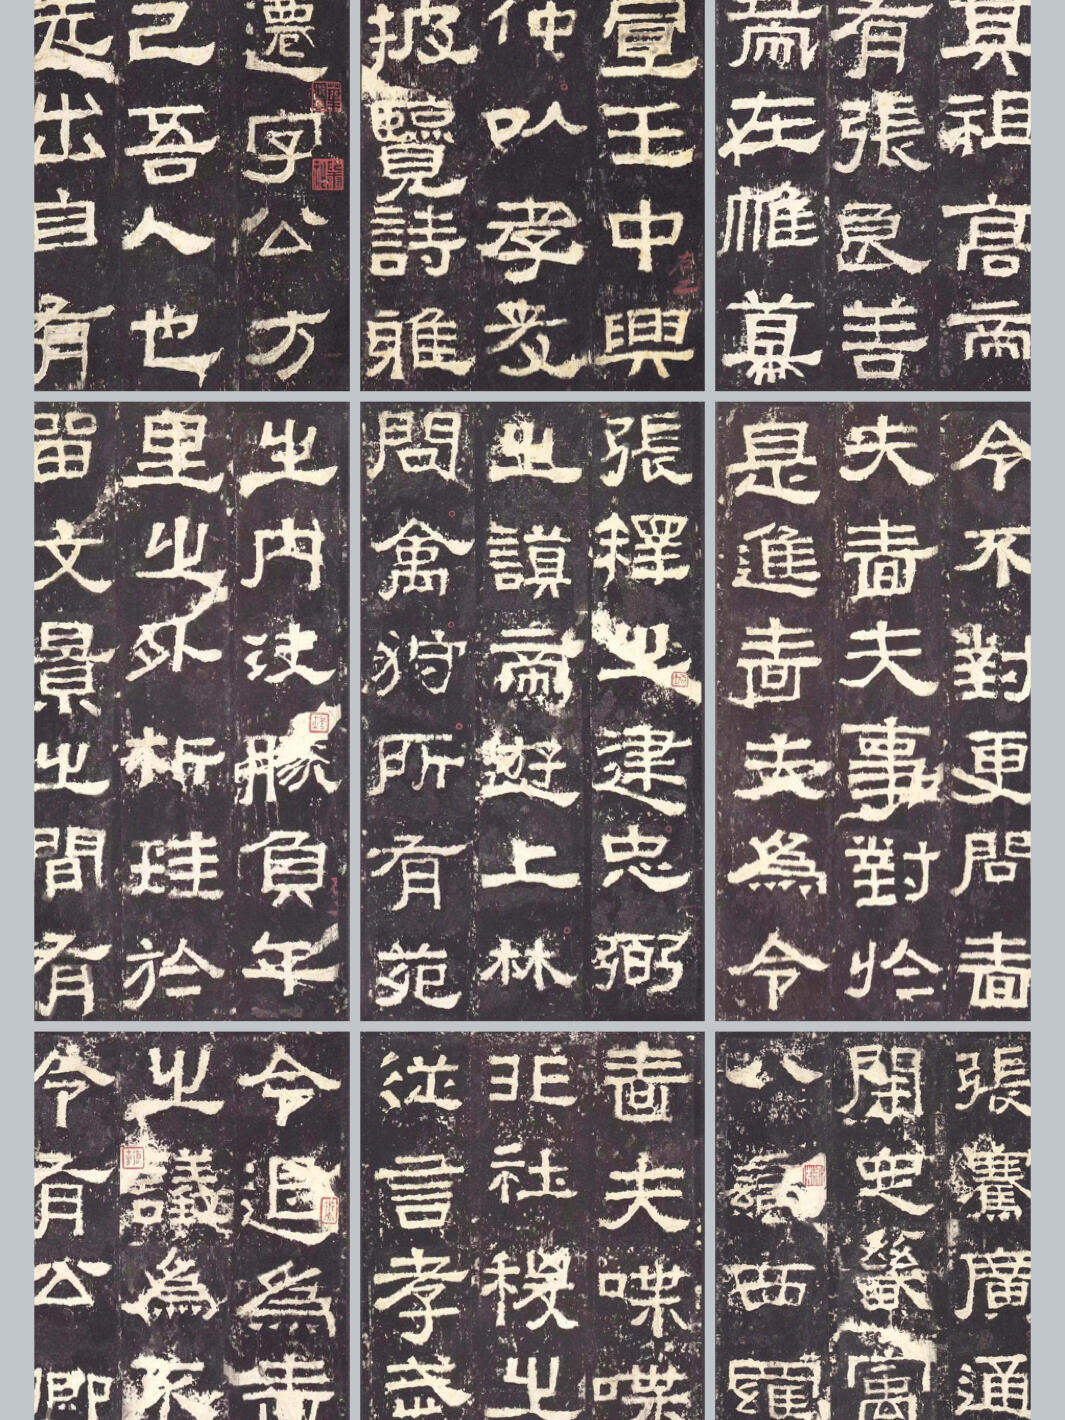 遷字公方
己吾人也
先出自有
宣王中興
仲以孝友
披覽詩雅
其祖高帝
有張良善
策在帷幕
之內決勝負千
里之外析珪於
留文景之間有
張釋之建忠弼
之謨帝遊上林
問禽狩所有苑
令不對更問嗇
夫嗇夫事對於
是進嗇夫為令
令退為嗇
之議為不
令有公卿
嗇夫喋喋
非社稷之
從言孝武
張騫廣通
開定畿寓
八蠻西羈